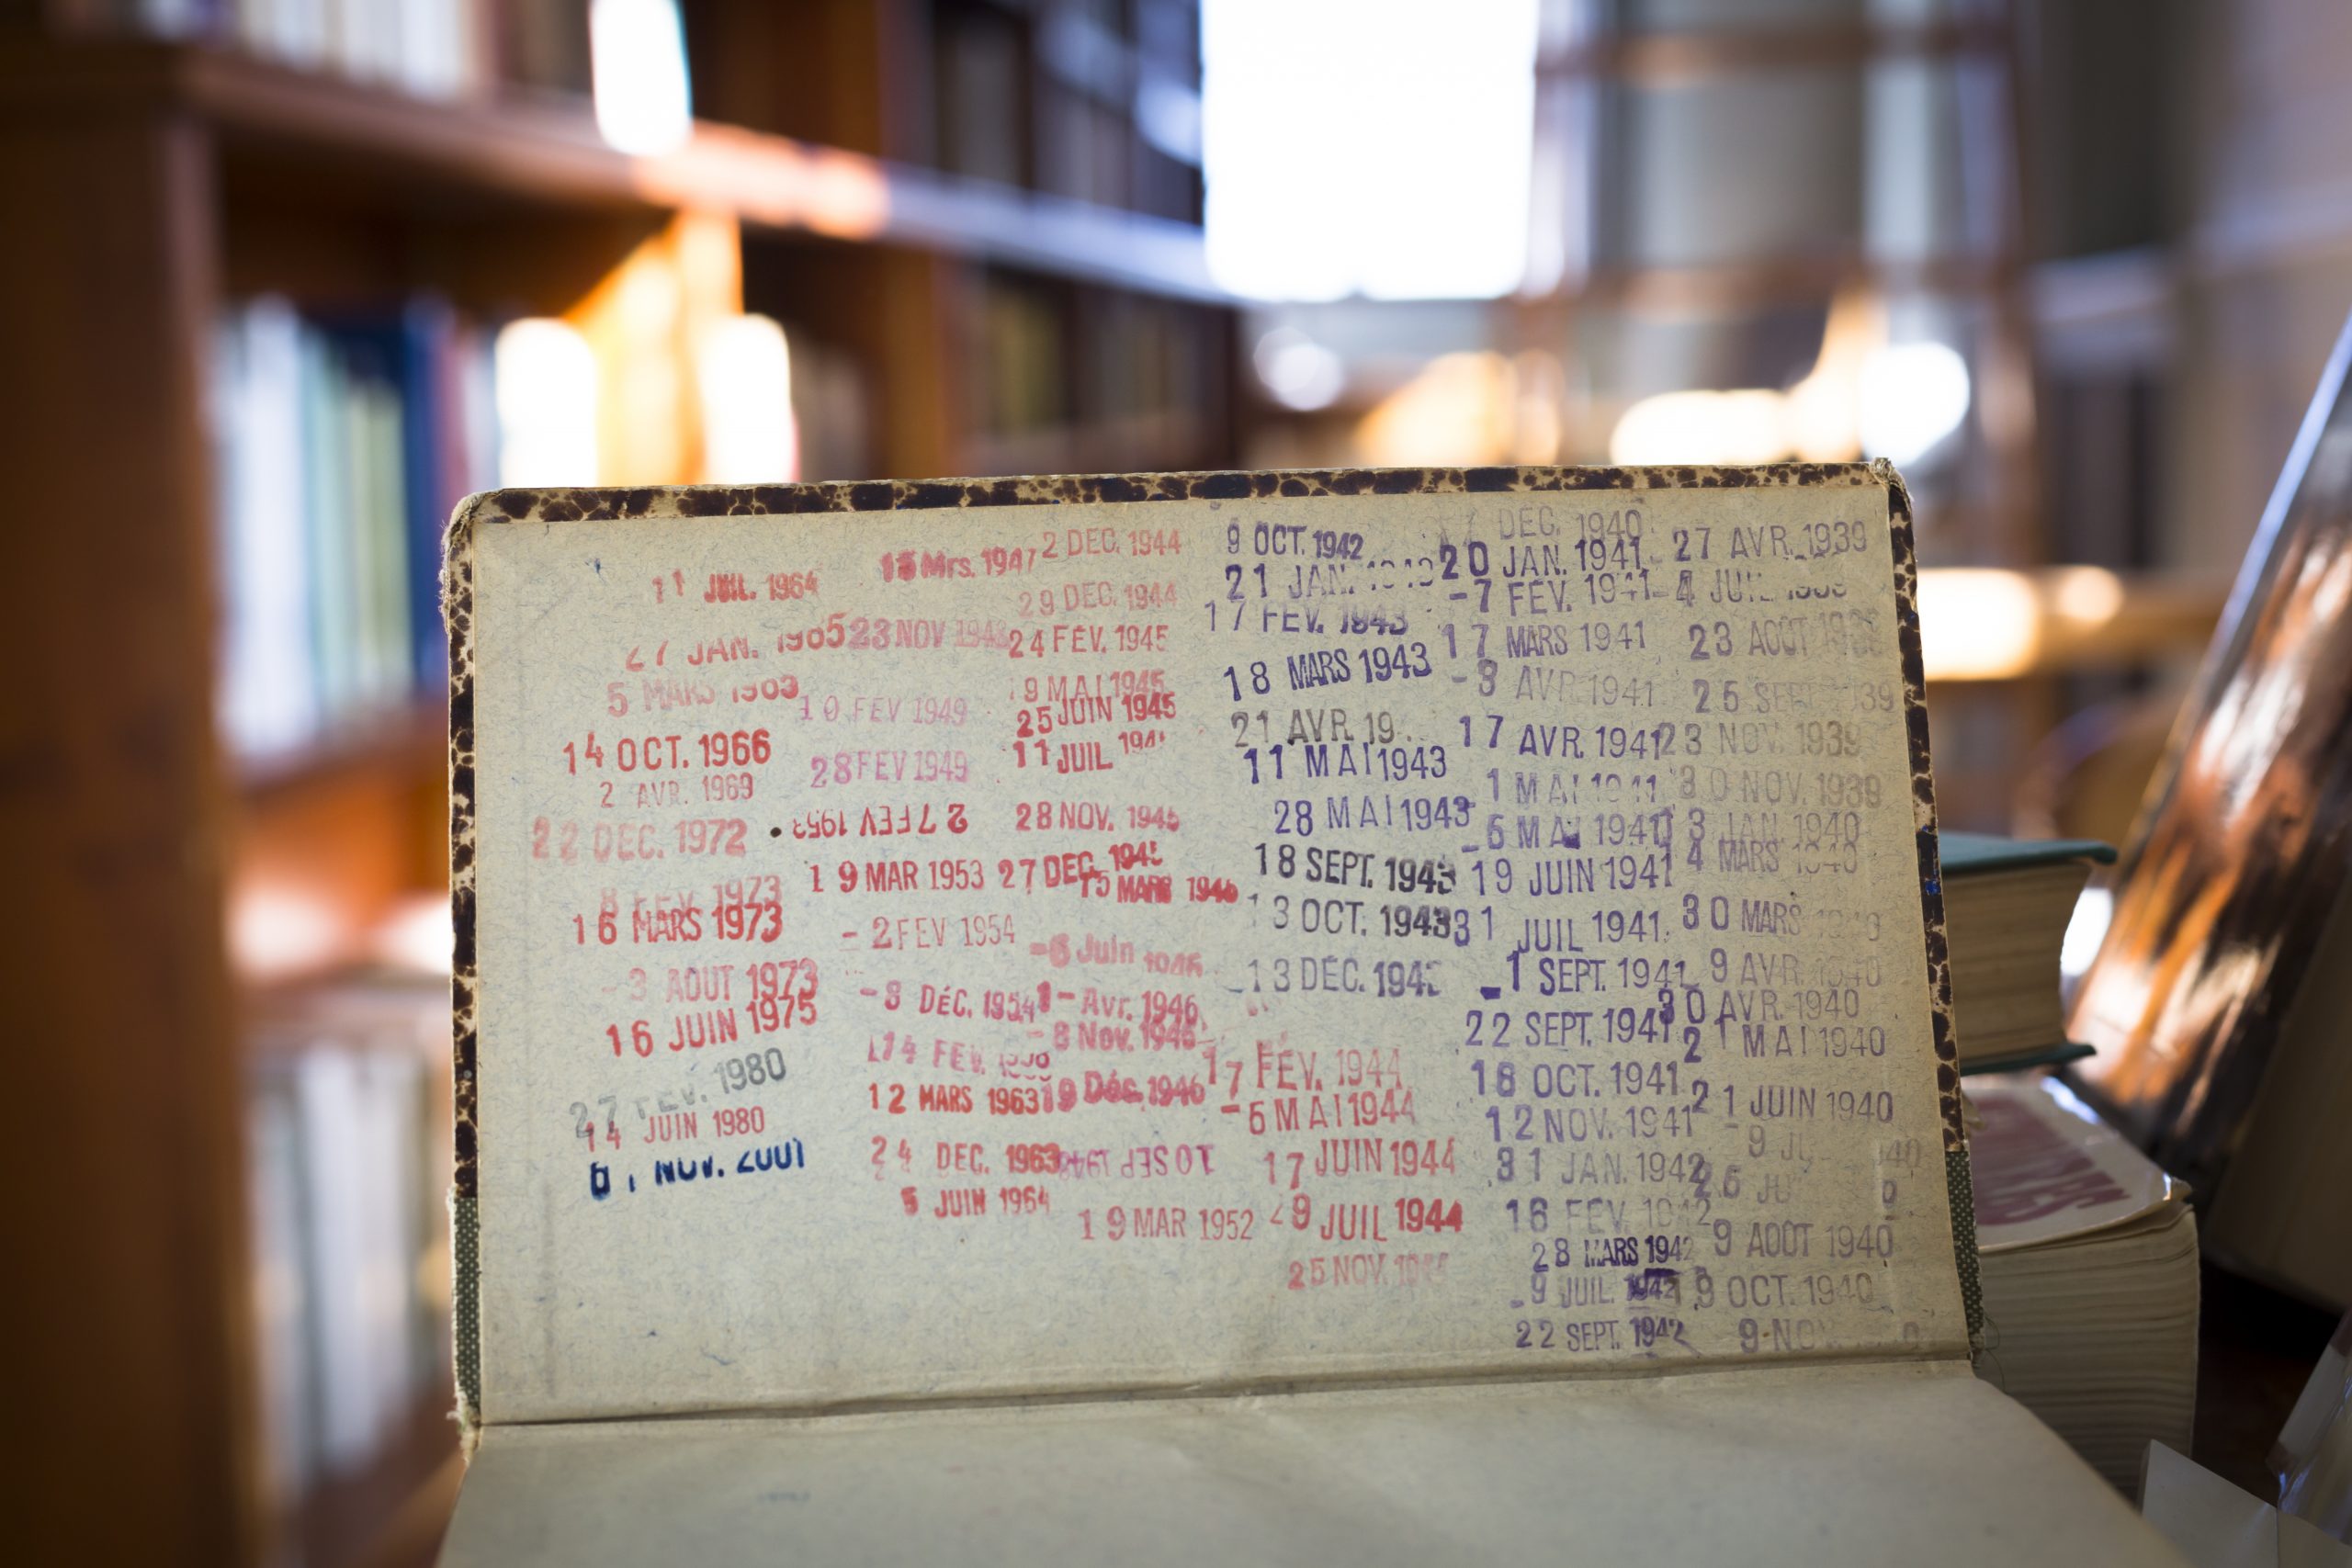 11 JUIL. 1964
27 JAN. 1965
5 MARS
14 OCT. 1966
2 AVR. 1969
22 DEC. 1972
8 FEV. 1973
16 MARS 1973
-3 AOUT 1973
16 JUIN 1975
27 FEV. 1980
14 JUIN 1980
NOV. 2001
Mrs. 1947
23 NOV
10 FEV 1949
28 FEV 1949
27 FEV 1953
19 MAR 1953
-2 FEV 1954
-8 DÉC. 1954
14 FEV.
12 MARS 1963
24 DEC. 1963
5 JUIN 1964
2 DEC. 1944
29 DEC. 1944
24 FÉV. 1945
9 MAI 1945
25 JUIN 1945
11 JUIL
28 NOV. 1945
27 DEC.
15 MARS 1946
-6 Juin
Avr. 1946
-8 Nov. 1946
19 Déc. 1946
10 SEP
19 MAR 1952
9 OCT. 1942
21 JAN.
17 FEV. 1943
18 MARS 1943
21 AVR
11 MAI 1943
28 MAI 1943
18 SEPT. 1943
13 OCT. 1943
13 DÉC.
17 FÉV. 1944
-6 MAI 1944
17 JUIN 1944
JUIL 1944
25 NOV.
DEC. 1940
20 JAN. 1941
-7 FÉV. 1941
17 MARS 1941
-8 AVR 1941
17 AVR. 1941
1 MAI
-6 MAI 1941
19 JUIN 1941
31 JUIL 1941
-1 SEPT. 1941
22 SEPT. 1941
16 OCT. 1941
12 NOV. 1941
31 JAN. 1942
16 FEV.
28 MARS 1942
-9 JUIL. 1942
22 SEPT.
27 AVR. 1939
-4
23 AOUT
25
23 NOV. 1939
30 NOV. 1939
13 JAN. 1940
4 MARS 1940
30 MARS
9 AVR.
30 AVR. 1940
21 MAI 1940
21 JUIN 1940
-9
26
9 AOÛT 1940
9 OCT. 1940
9